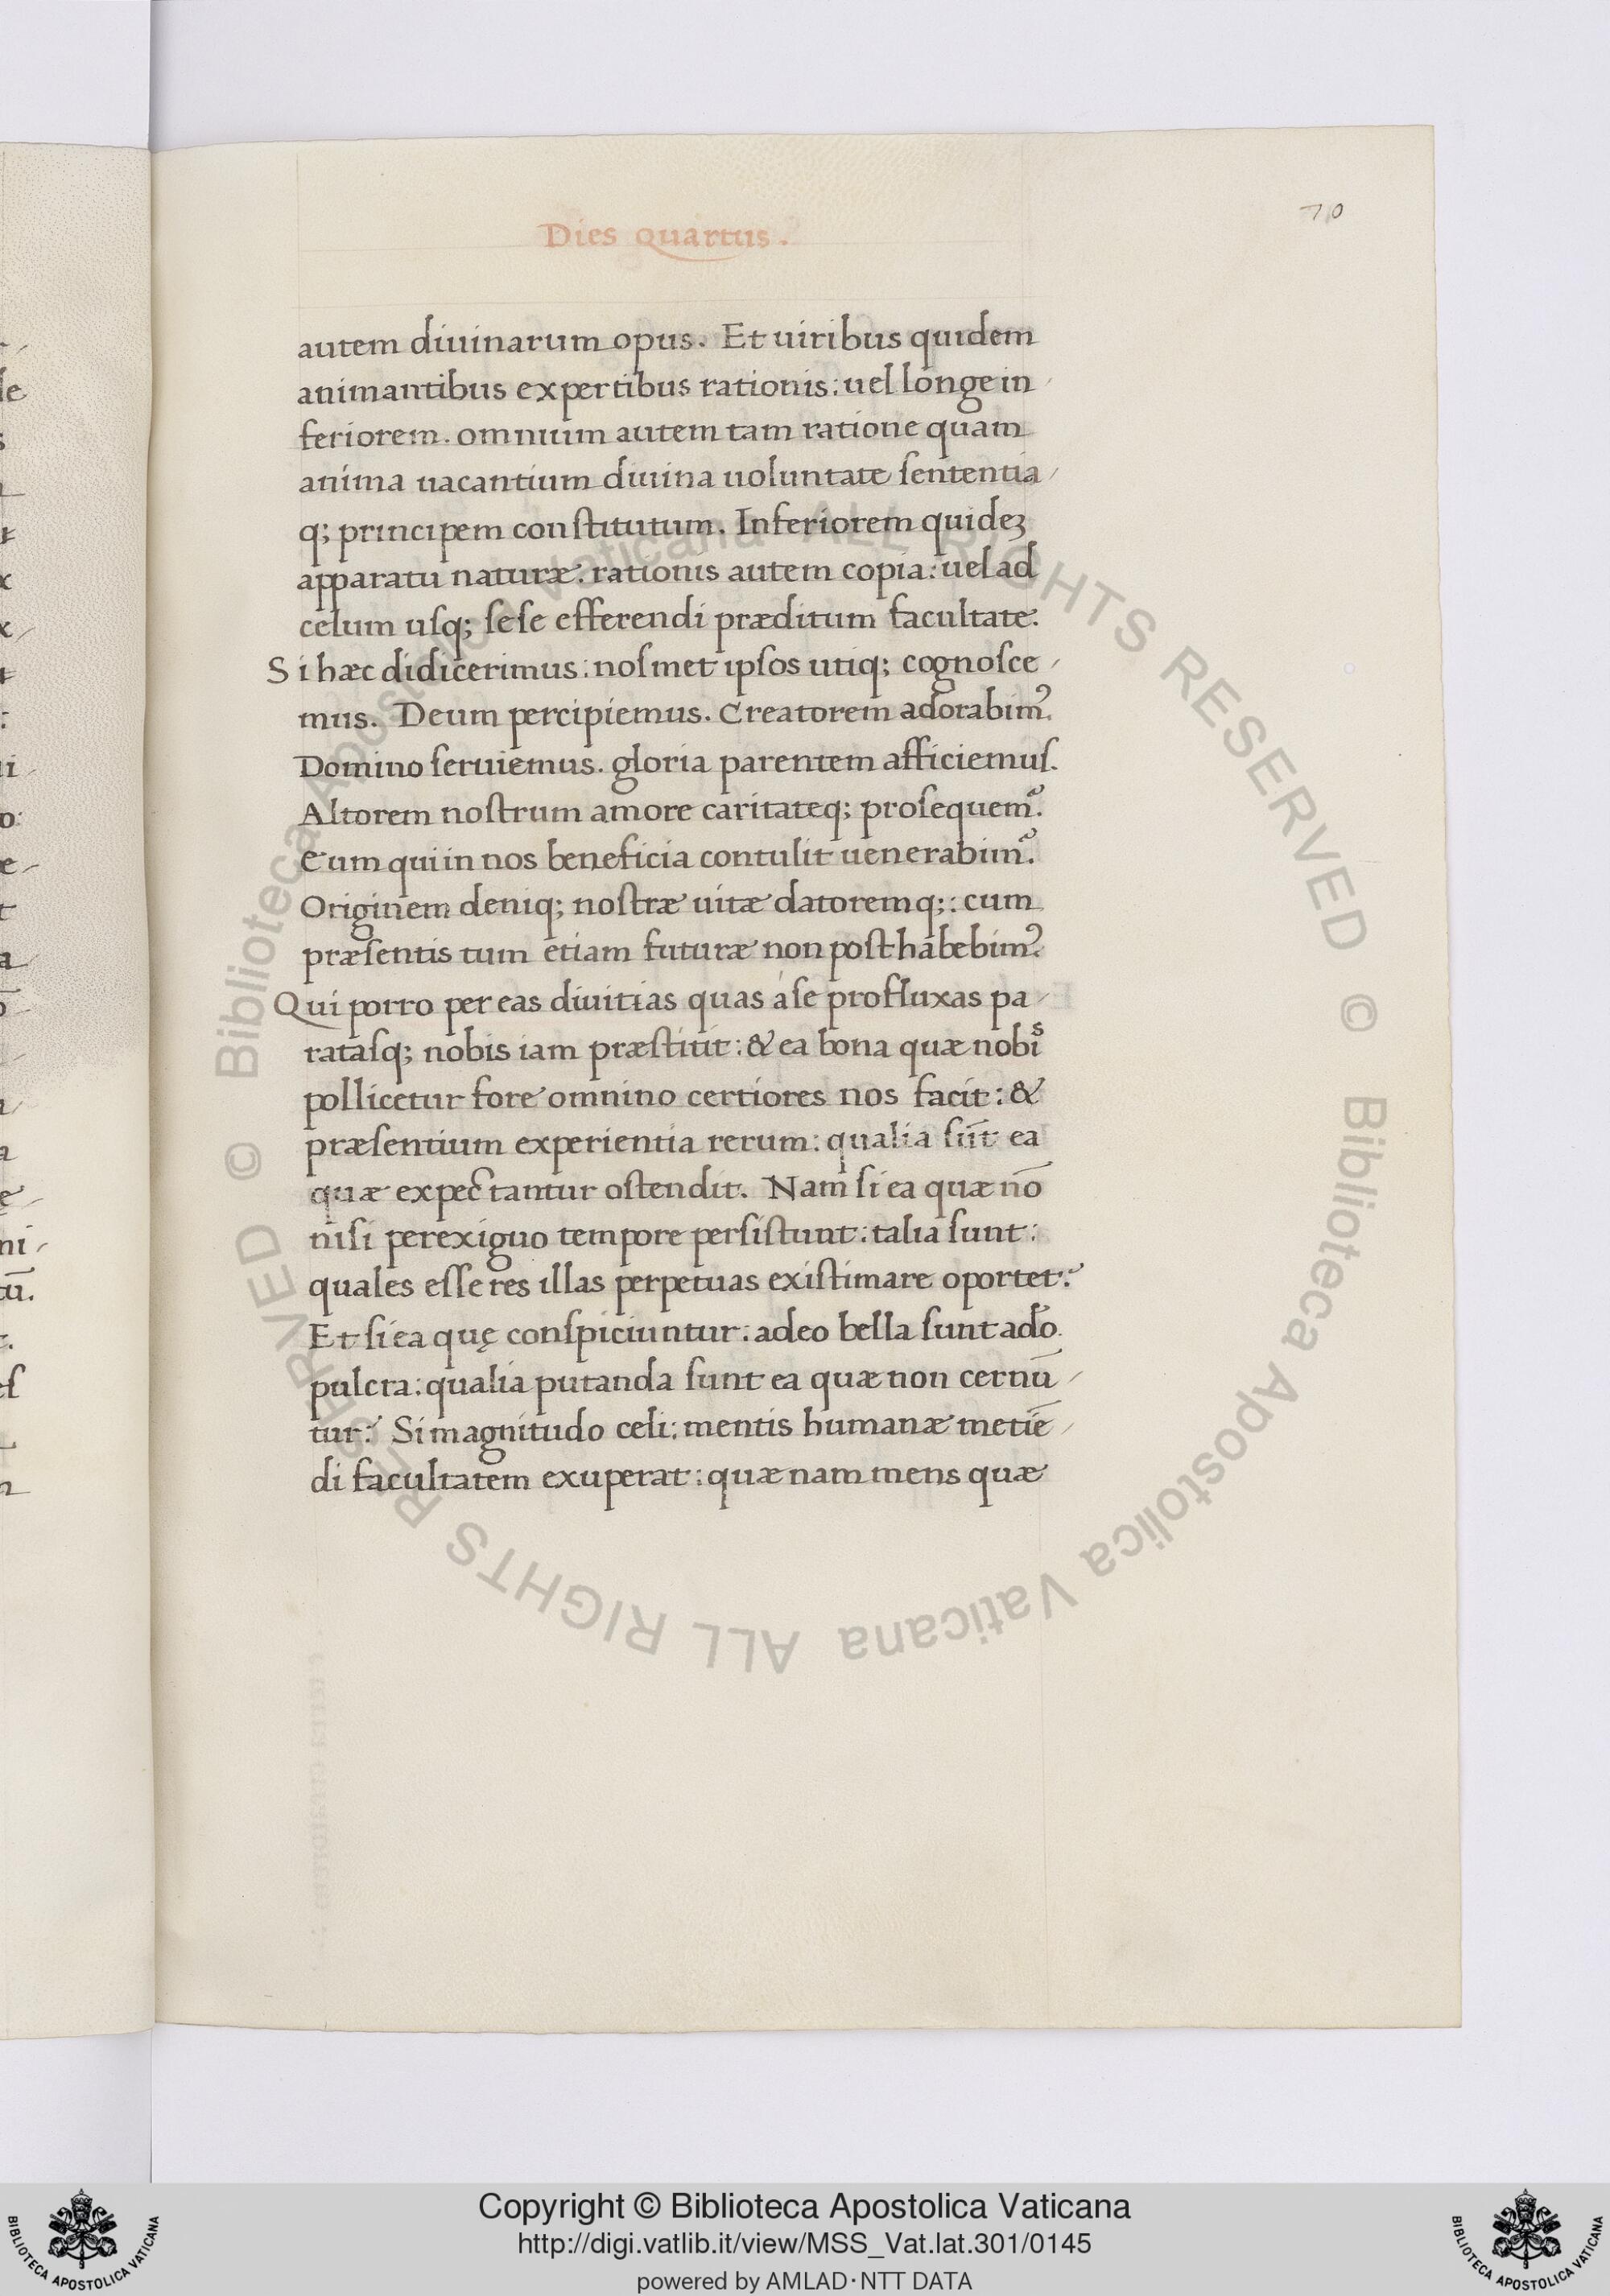 70
Dies quartus.
autem diuinarum opus. Et uiribus quidem
animantibus expertibus rationis: uel longe in
feriorem. omnium autem tam ratione quam
anima uacantium diuina uoluntate ſententia
q; principem conſtitutum. Inferiorem quideʒ
apparatu naturæ. rationis autem copia: uel ad
celum uſq; ſeſe efferendi præditum facultate.
Si hæc didicerimus: noſmet ipſos utiq; cognoſce
mus. Deum percipiemus. Creatorem adorabimꝰ.
Domino ſeruiemus. gloria parentem afficiemuſ.
Altorem noſtrum amore caritateq; proſequemꝰ.
Eum qui in nos beneficia contulit uenerabimꝰ.
Originem deniq; noſtræ uitæ datoremq;: cum
præſentis tum etiam futuræ non poſthabebimꝰ.
Qui porro per eas diuitias quas áſe profluxas pa
rataſq; nobis iam præſtitit: & ea bona quæ nobiˢ
pollicetur fore omnino certiores nos facit: &
præſentium experientia rerum: qualia ſūt ea
quæ expectantur oſtendit. Nam ſi ea quæ nō
niſi perexiguo tempore perſiſtunt: talia ſunt:
quales eſſe res illas perpetuas exiſtimare oportet:
Et ſi ea quę conſpiciuntur: adeo bella ſunt adō
pulcra: qualia putanda ſunt ea quæ non cernū
tur: Si magnitudo celi: mentis humanæ metiē
di facultatem exuperat: quæ nam mens quæ
© Biblioteca Apostolica Vaticana ALL RIGHTS RESERVED
© Biblioteca Apostolica Vaticana ALL RIGHTS RESERVED
Copyright © Biblioteca Apostolica Vaticana
http://digi.vatlib.it/view/MSS_Vat.lat.301/0145
powered by AMLAD·NTT DATA
BIBLIOTECA APOSTOLICA VATICANA
BIBLIOTECA APOSTOLICA VATICANA